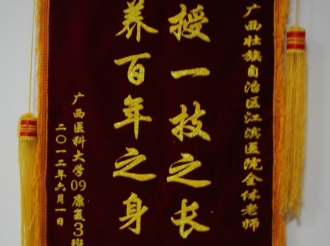 广西壮族自治区江滨医院全体老师
授一技之长
养百年之身
广西医科大学09康复3班
二〇一二年六月一日